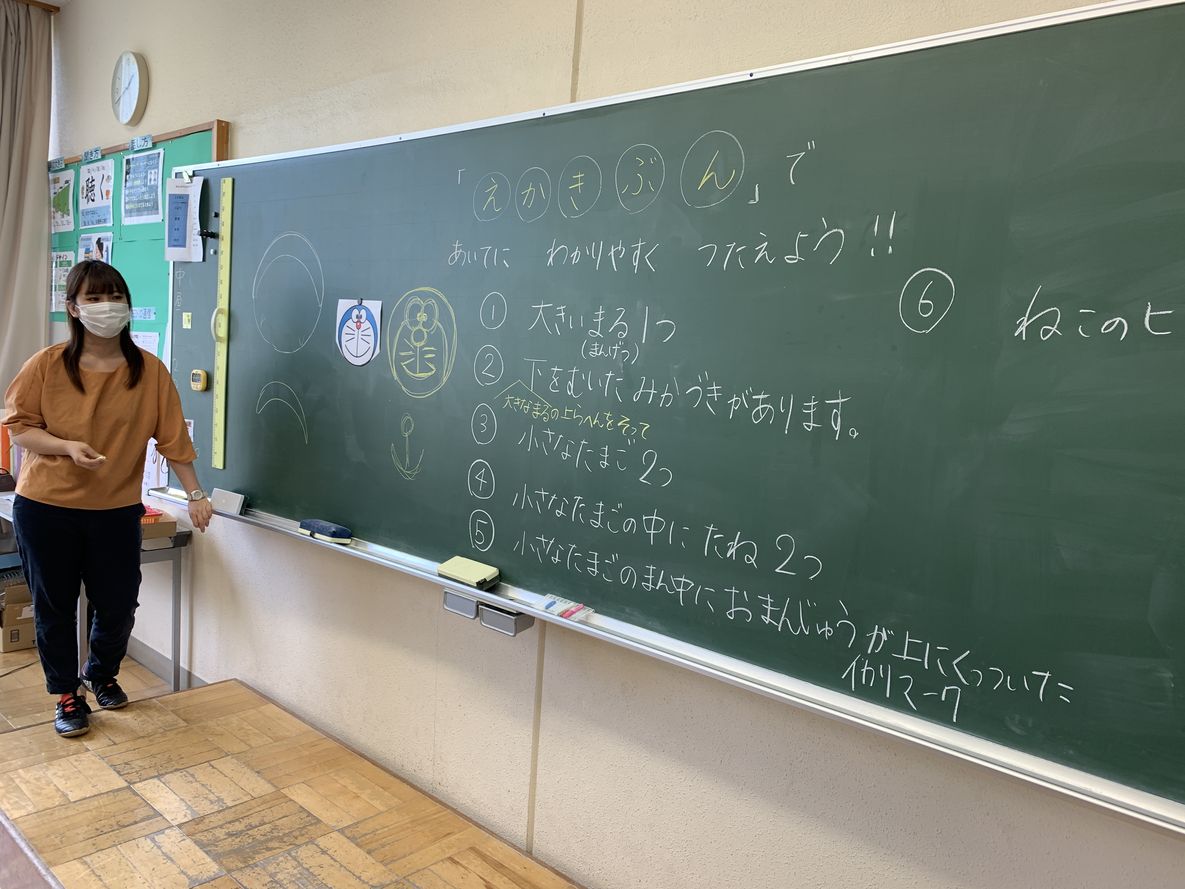 聴く
「えかきぶん」で
あいてに わかりやすく つたえよう!!
① 大きいまる1つ
(まんげつ)
② 下をむいた みかづきがあります。
大きなまるの上らへんをそって
③ 小さなたまご2つ
④ 小さなたまごの中に たね2つ
⑤ 小さなたまごのまん中に おまんじゅうが上にくっついた
イカリマーク
⑥ ねこのヒ